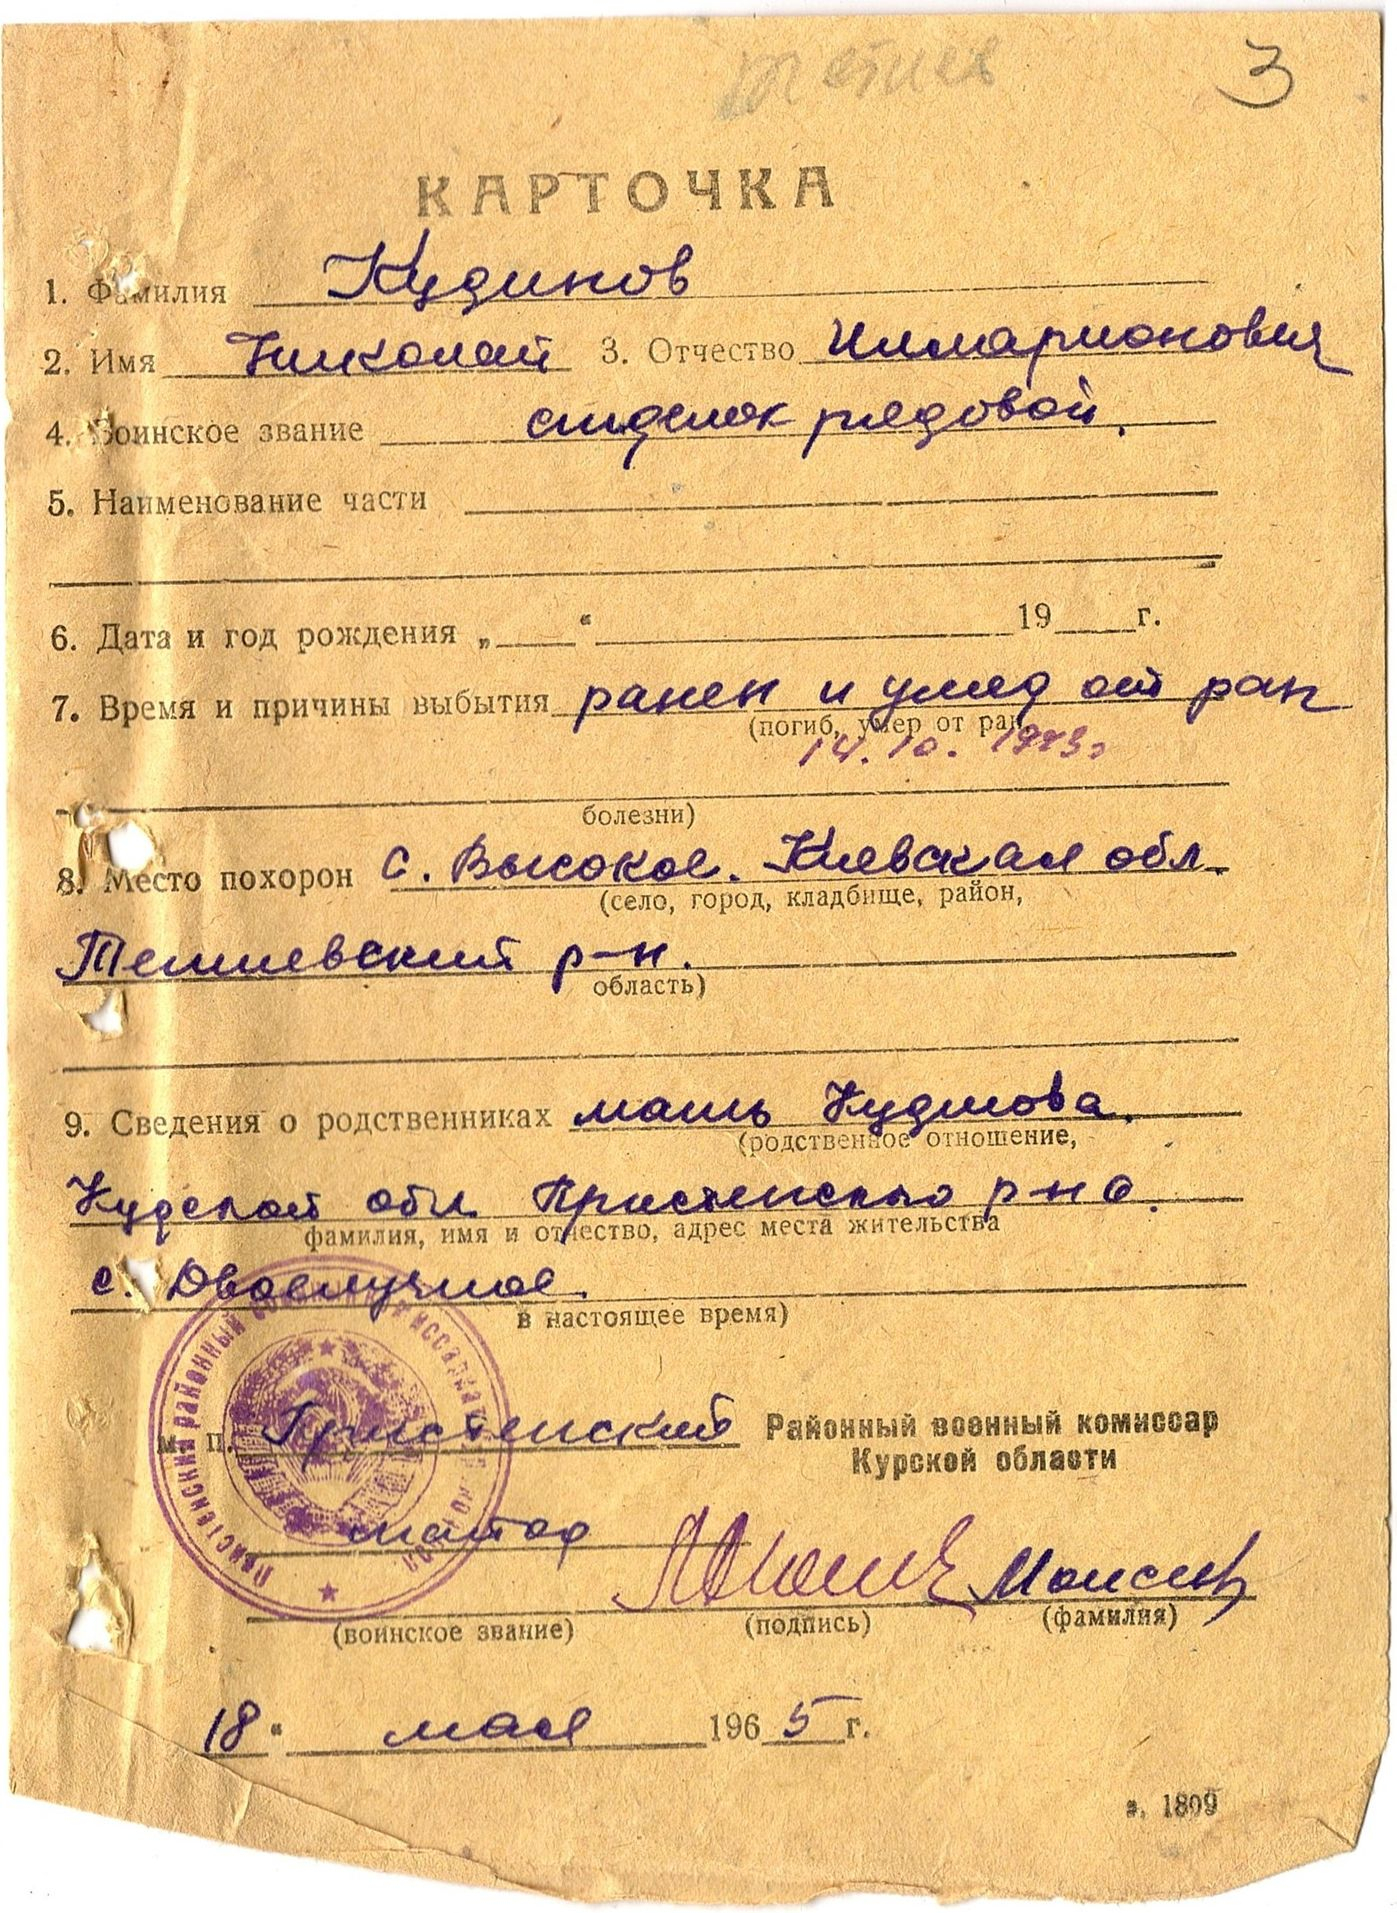 3
КАРТОЧКА
1. Фамилия Кудинов
2. Имя Николай 3. Отчество Илларионович
4. Воинское звание стрелок рядовой.
5. Наименование части
6. Дата и год рождения „ “ 19 г.
7. Время и причины выбытия ранен и умер от ран
(погиб, умер от ран
14.10.1943г
болезни)
8. Место похорон с. Высокое. Киевская обл.
(село, город, кладбище, район,
р-н.
область)
9. Сведения о родственниках мать Кудинова.
(родственное отношение,
Курской обл. Пристенского р-на.
фамилия, имя и отчество, адрес места жительства
с. Двоелучное.
в настоящее время)
м. п. Пристенский Районный военный комиссар
Курской области
майор
(воинское звание) (подпись) (фамилия)
18 “ мая 1965 г.
з. 1809